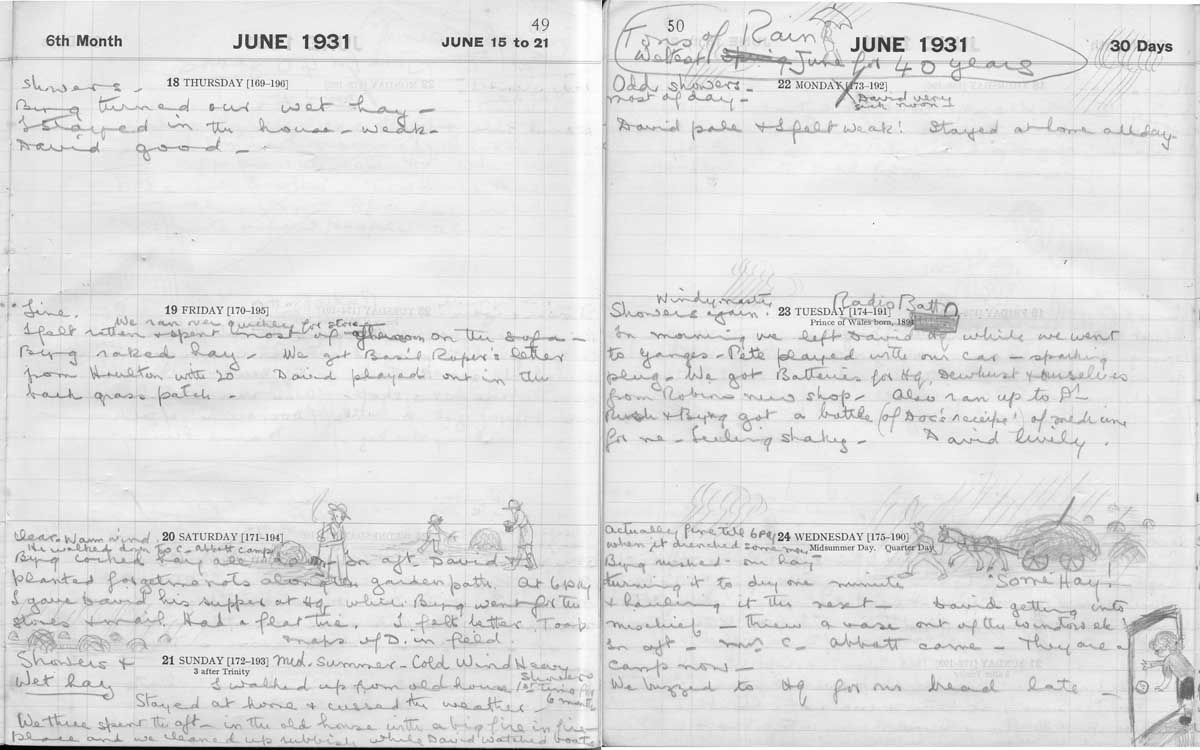 49
6th Month
JUNE 1931
JUNE 15 to 21
Showers -
18 THURSDAY [169-196]
Byng turned our wet hay -
I stayed in the house - weak -
David good -
Fine.
19 FRIDAY [170-195]
We ran over quickly for stores
I felt rotten & spent most of afternoon on the sofa -
Byng raked hay - We got Basil Roper's letter
from Houlton with 20 David played out in the
back grass patch -
Clear. Warm wind.
20 SATURDAY [171-194]
He walked down to C- Abbott camp
Byng cocked hay all day on aft. David
planted forgetmenots along garden path. At 6 p.m
I gave David his supper at Hq while Byng went for the
stores & mail. Had a flat tire. I felt better. Took
snaps of D. in field
Showers &
wet hay
21 SUNDAY [172-193] Mid. Summer - Cold Wind Heavy
Showers
3 after Trinity
I walked up from old house 1st time for
6 months
Stayed at home & cussed the weather -
We three spent the aft - in the old house with a big fire in fire
place and we cleaned up rubbish while David watched boats
50
Tons of Rain
Wettest Spring June for 40 years
JUNE 1931
30 Days
Odd showers -
22 MONDAY [173-192]
most of day -
David very
sick noon -
David pale & I felt weak! Stayed at home all day -
Windy
Radio Batt
Showers again!
23 TUESDAY [174-191]
Prince of Wales born, 1894
In morning we left David at Hq while we went
to Yanges - Pete played with our car - sparking
plug - We got Batteries for Hq, Dewhurst & ourselves
from Robins new shop - Also ran up to Dr
& Byng got a bottle (of Doc's receipe!) of medicine
for me - feeling shakey - David lively.
Actually fine till 6 pm
when it drenched some more
24 WEDNESDAY [175-190]
Midsummer Day. Quarter Day
Byng rushed our hay
turning it to dry one minute "Some Hay!
& hauling it the next - David getting into
mischief - threw a vase out of the window etc!
In aft - Mrs C- Abbott came - They are a
camp now -
We buzzed to Hq for our bread late -